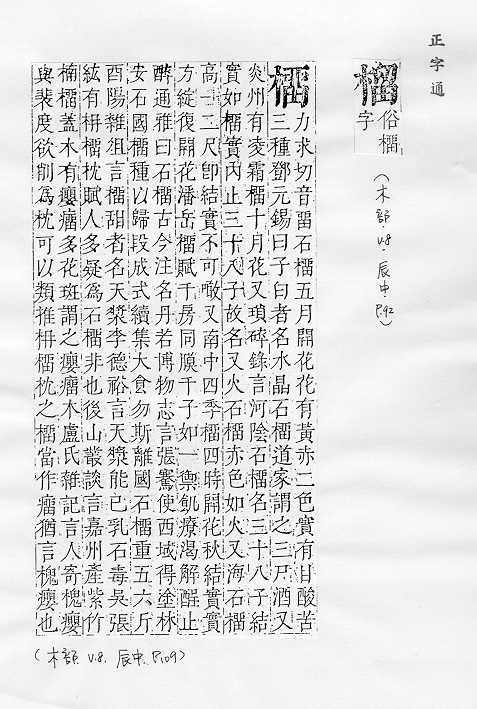 正字通
榴 俗橊
字
(木部. v.8. 辰中. P.92)
橊 力求切音畱石橊五月開花花有黃赤二色實有甘酸苦
三種鄧元錫曰子白者名水晶石橊道家謂之三尸酒又
炎州有凌霜橊十月花又瑣碎錄言河陰石橊名三十八子結
實如橊實內止三十八子故名又火石橊赤色如火又海石橊
高一二尺卽結實不可噉又南中四季橊四時開花秋結實實
方綻復開花潘岳橊賦千房同膜千子如一禦飢療渴解酲止
醉通雅曰石橊古今注名丹若博物志言張騫使西域得塗林
安石國橊種以歸段成式續集大食勿斯離國石橊重五六斤
酉陽雜俎言橊甜者名天漿李德裕言天漿能已乳石毒吳張
絃有枏橊枕賦人多疑爲石橊非也後山叢談言嘉州產紫竹
楠橊蓋木有癭瘤多花斑謂之癭瘤木盧氏雜記言人寄槐癭
與裴度欲削爲枕可以類推枏橊枕之橊當作瘤猶言槐癭也
(木部. v.8. 辰中. P.109)